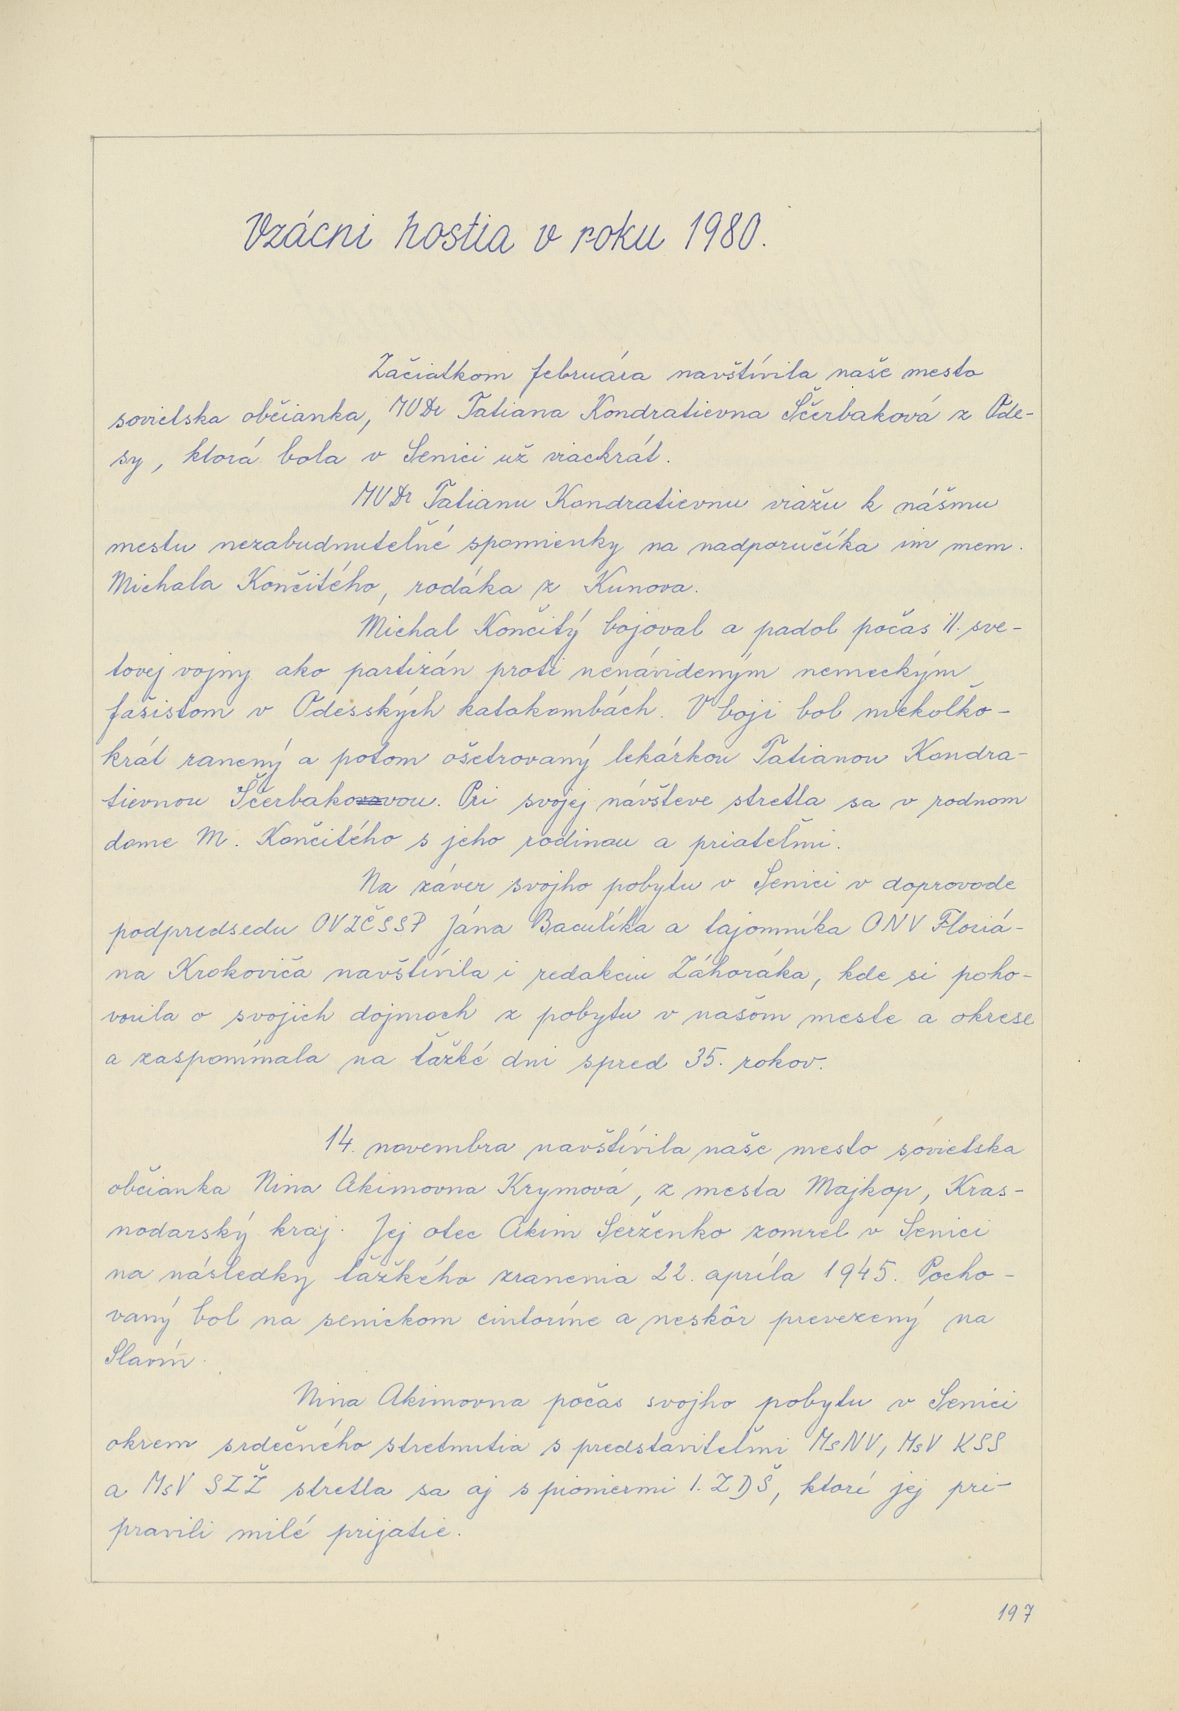 Vzácni hostia v roku 1980.
Začiatkom februára navštívila naše mesto
sovietska občianka, MUDr Tatiana Kondratievna Ščerbaková z Ode-
sy, ktorá bola v Senici už viackrát.
MUDr Tatianu Kondratievnu viažu k nášmu
mestu nezabudnuteľné spomienky na nadporučíka in mem.
Michala Končitého, rodáka z Kunova.
Michal Končitý bojoval a padol počas II. sve-
tovej vojny ako partizán proti nenávideným nemeckým
fašistom v Odesských katakombách. V boji bol niekoľko-
krát ranený a potom ošetrovaný lekárkou Tatianou Kondra-
tievnou Ščerbakovou. Pri svojej návšteve stretla sa v rodnom
dome M. Končitého s jeho rodinou a priateľmi.
Na záver svojho pobytu v Senici v doprovode
podpredsedu OVZČSSP Jána Baculíka a tajomníka ONV Floriá-
na Krokoviča navštívila i redakciu Záhoráka, kde si poho-
vorila o svojich dojmoch z pobytu v našom meste a okrese
a zaspomínala na ťažké dni spred 35. rokov.
14. novembra navštívila naše mesto sovietska
občianka Nina Akimovna Krymová, z mesta Majkop, Kras-
nodarský kraj. Jej otec Akim Serženko zomrel v Senici
na následky ťažkého zranenia 22. apríla 1945. Pocho-
vaný bol na senickom cintoríne a neskôr prevezený na
Slavín.
Nina Akimovna počas svojho pobytu v Senici
okrem srdečného stretnutia s predstaviteľmi MsNV, MsV KSS
a MsV SZŽ stretla sa aj s pioniermi 1. ZDŠ, ktorí jej pri-
pravili milé prijatie.
197